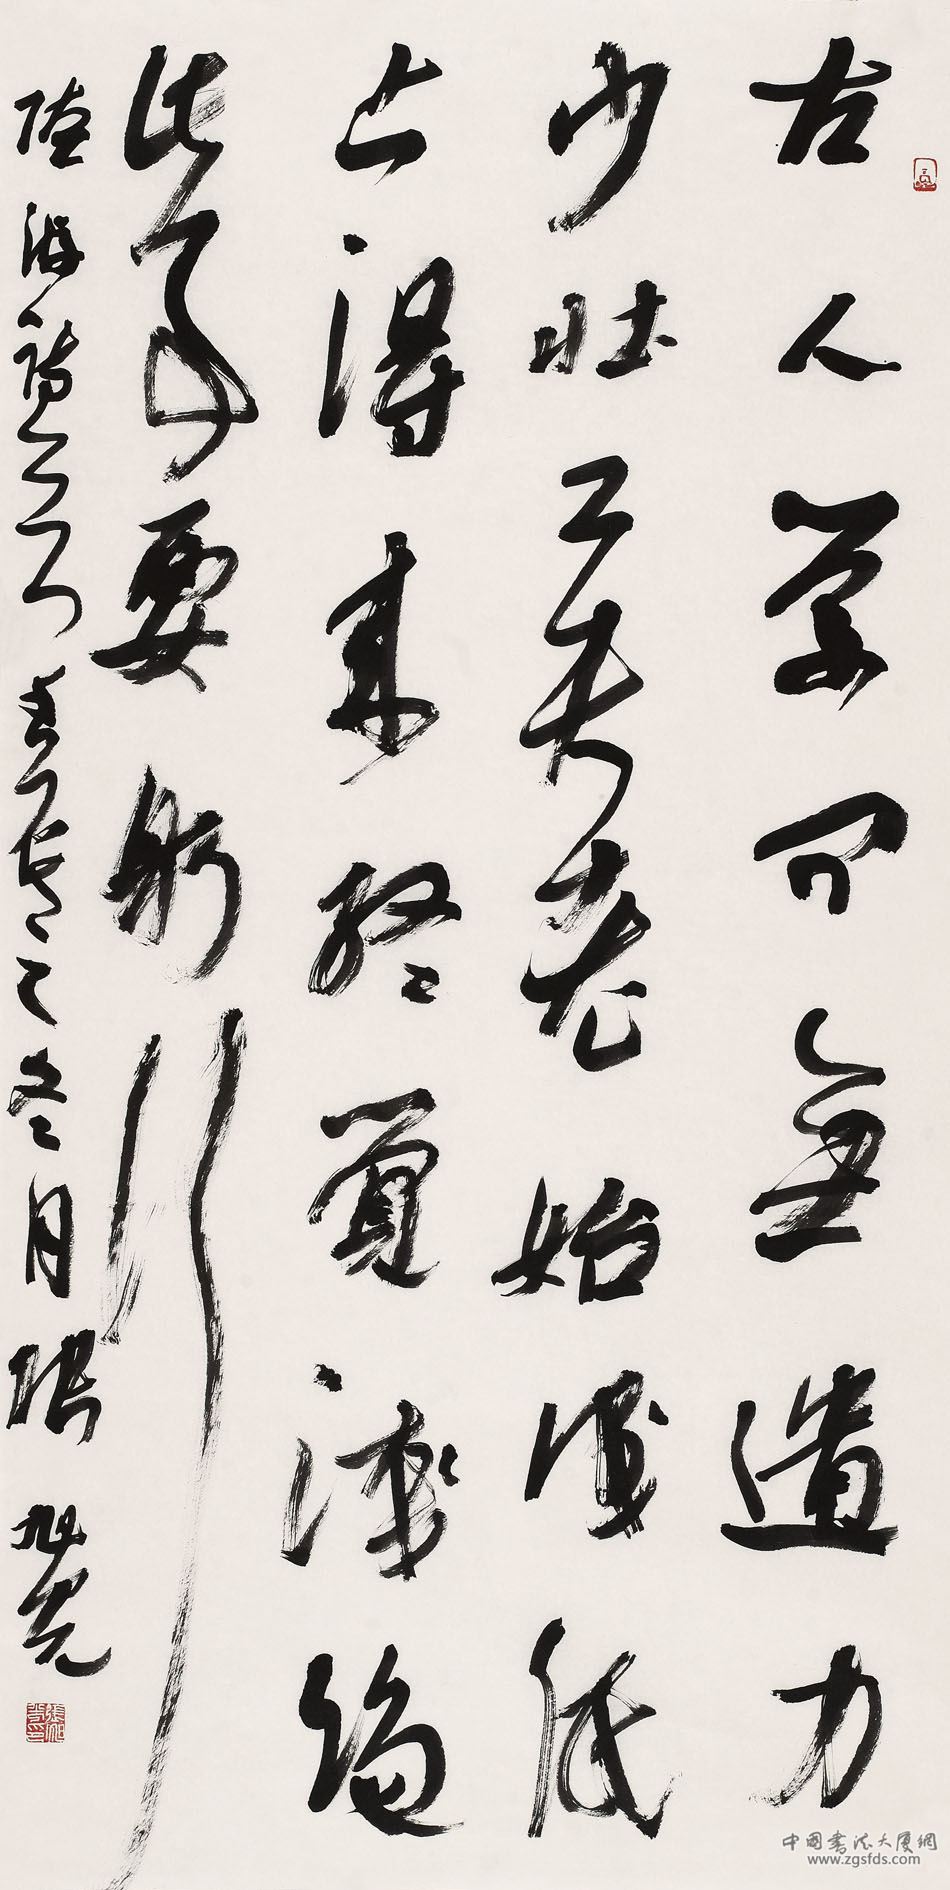 古人学问無遗力
少壮工夫老始成纸
上得来终觉浅绝
此事要躬行
陸游詩之冬月張旭光
中国书法大厦网
www.zgsfds.com